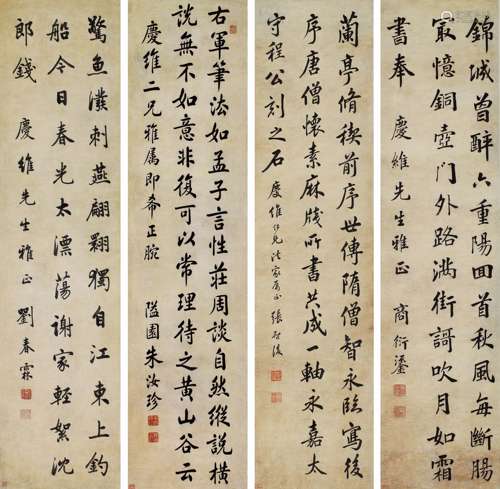 錦城曾醉六重陽回首秋風每斷腸
㝡憶銅壺門外路滿街謌吹月如霜
書奉 慶維先生雅正 商衍鎏
蘭亭脩禊前序世傳隋僧智永臨寫後
序唐僧懷素麻牋所書共成一軸永嘉太
守程公刻之石 慶維仁兄法家屬正 張啟後
右軍筆法如孟子言性莊周談自然縱說橫
說無不如意非復可以常理待之黃山谷云
慶維二兄雅属即希正腕 隘園朱汝珍
驚魚潑剌燕翩翾獨自江東上釣
船今日春光太漂蕩謝家輕絮沈
郎錢 慶維先生雅正 劉春霖